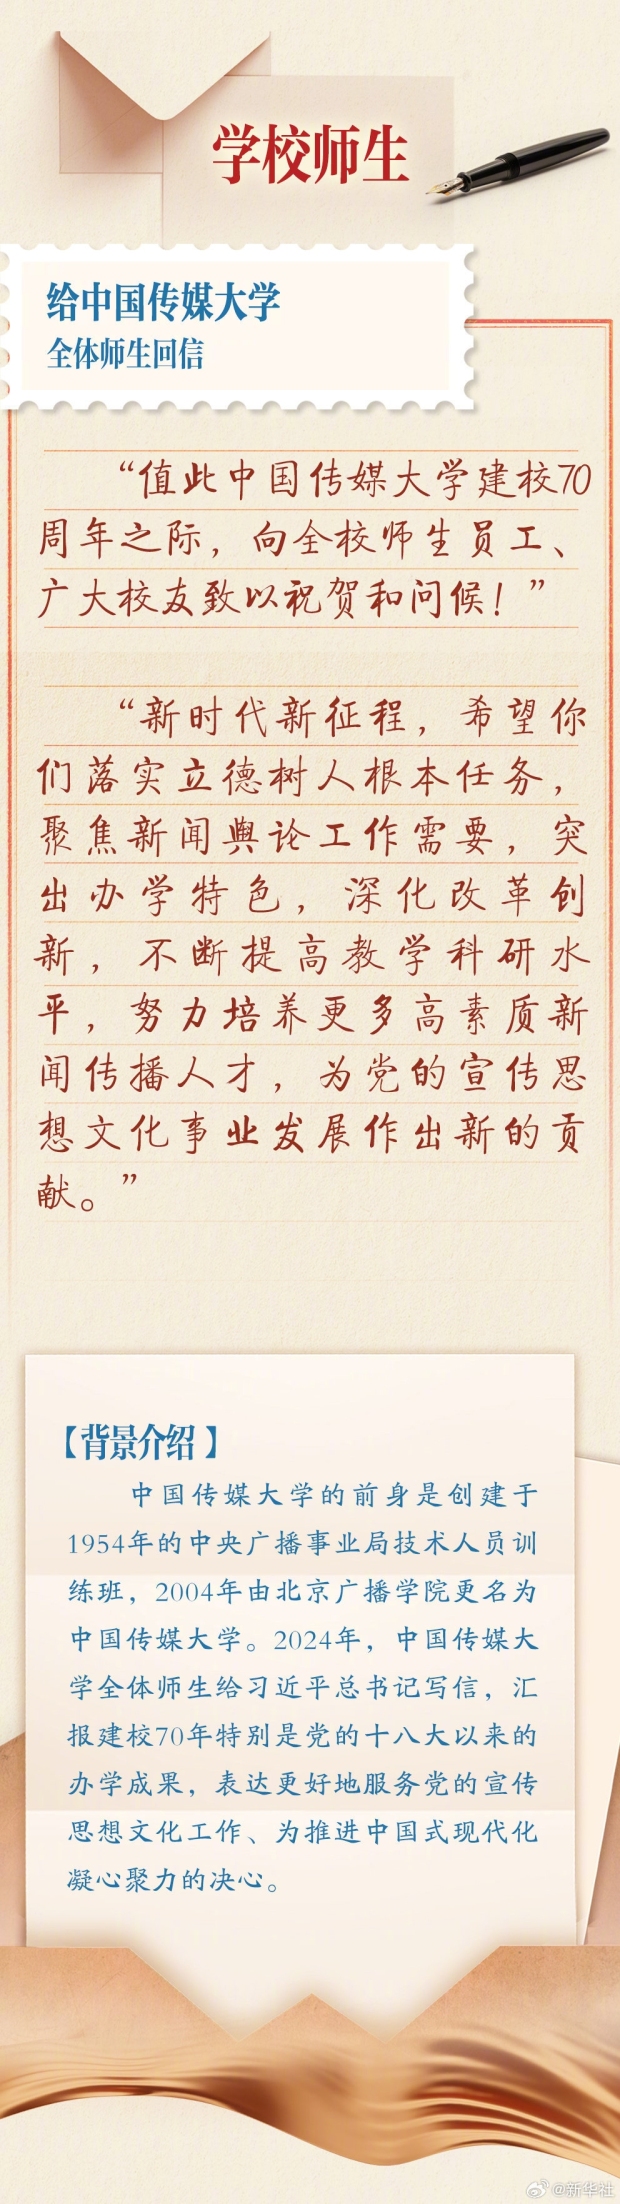 学校师生
给中国传媒大学
全体师生回信
“值此中国传媒大学建校70
周年之际，向全校师生员工、
广大校友致以祝贺和问候！”
“新时代新征程，希望你
们落实立德树人根本任务，
聚焦新闻舆论工作需要，突
出办学特色，深化改革创
新，不断提高教学科研水
平，努力培养更多高素质新
闻传播人才，为党的宣传思
想文化事业发展作出新的贡
献。”
【背景介绍】
中国传媒大学的前身是创建于
1954年的中央广播事业局技术人员训
练班，2004年由北京广播学院更名为
中国传媒大学。2024年，中国传媒大
学全体师生给习近平总书记写信，汇
报建校70年特别是党的十八大以来的
办学成果，表达更好地服务党的宣传
思想文化工作、为推进中国式现代化
凝心聚力的决心。
@新华社